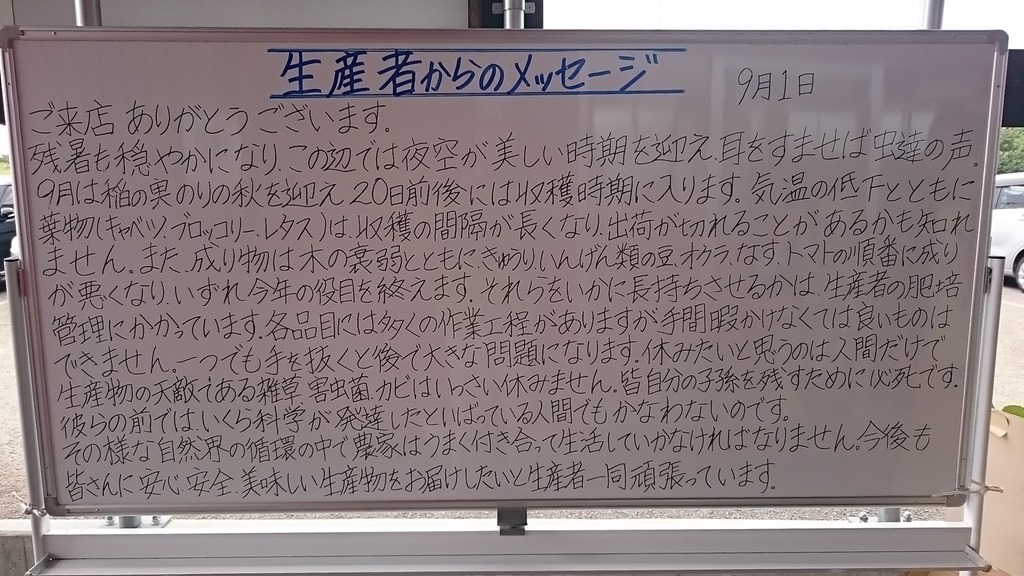 生産者からのメッセージ
9月1日
ご来店ありがとうございます。
残暑も穏やかになり、この辺では夜空が美しい時期を迎え、耳をすませば虫達の声。
9月は稲の実のりの秋を迎え、20日前後には収穫時期に入ります。気温の低下とともに
葉物(キャベツ、ブロッコリー、レタス)は、収穫の間隔が長くなり、出荷が切れることがあるかも知れ
ません。また、成り物は木の衰弱とともに、きゅうり、いんげん類の豆、オクラ、なす、トマトの順番に成り
が悪くなり、いずれ今年の役目を終えます。それらをいかに長持ちさせるかは、生産者の肥培
管理にかかっています。各品目には多くの作業工程がありますが手間暇かけなくては良いものは
できません。一つでも手を抜くと後で大きな問題になります。休みたいと思うのは人間だけで
生産物の天敵である雑草、害虫菌、カビはいっさい休みません。皆自分の子孫を残すために必死です。
彼らの前では、いくら科学が発達したといばっている人間でもかなわないのです。
その様な自然界の循環の中で農家はうまく付き合って生活していかなければなりません。今後も
皆さんに安心、安全、美味しい生産物をお届けしたいと生産者一同頑張っています。